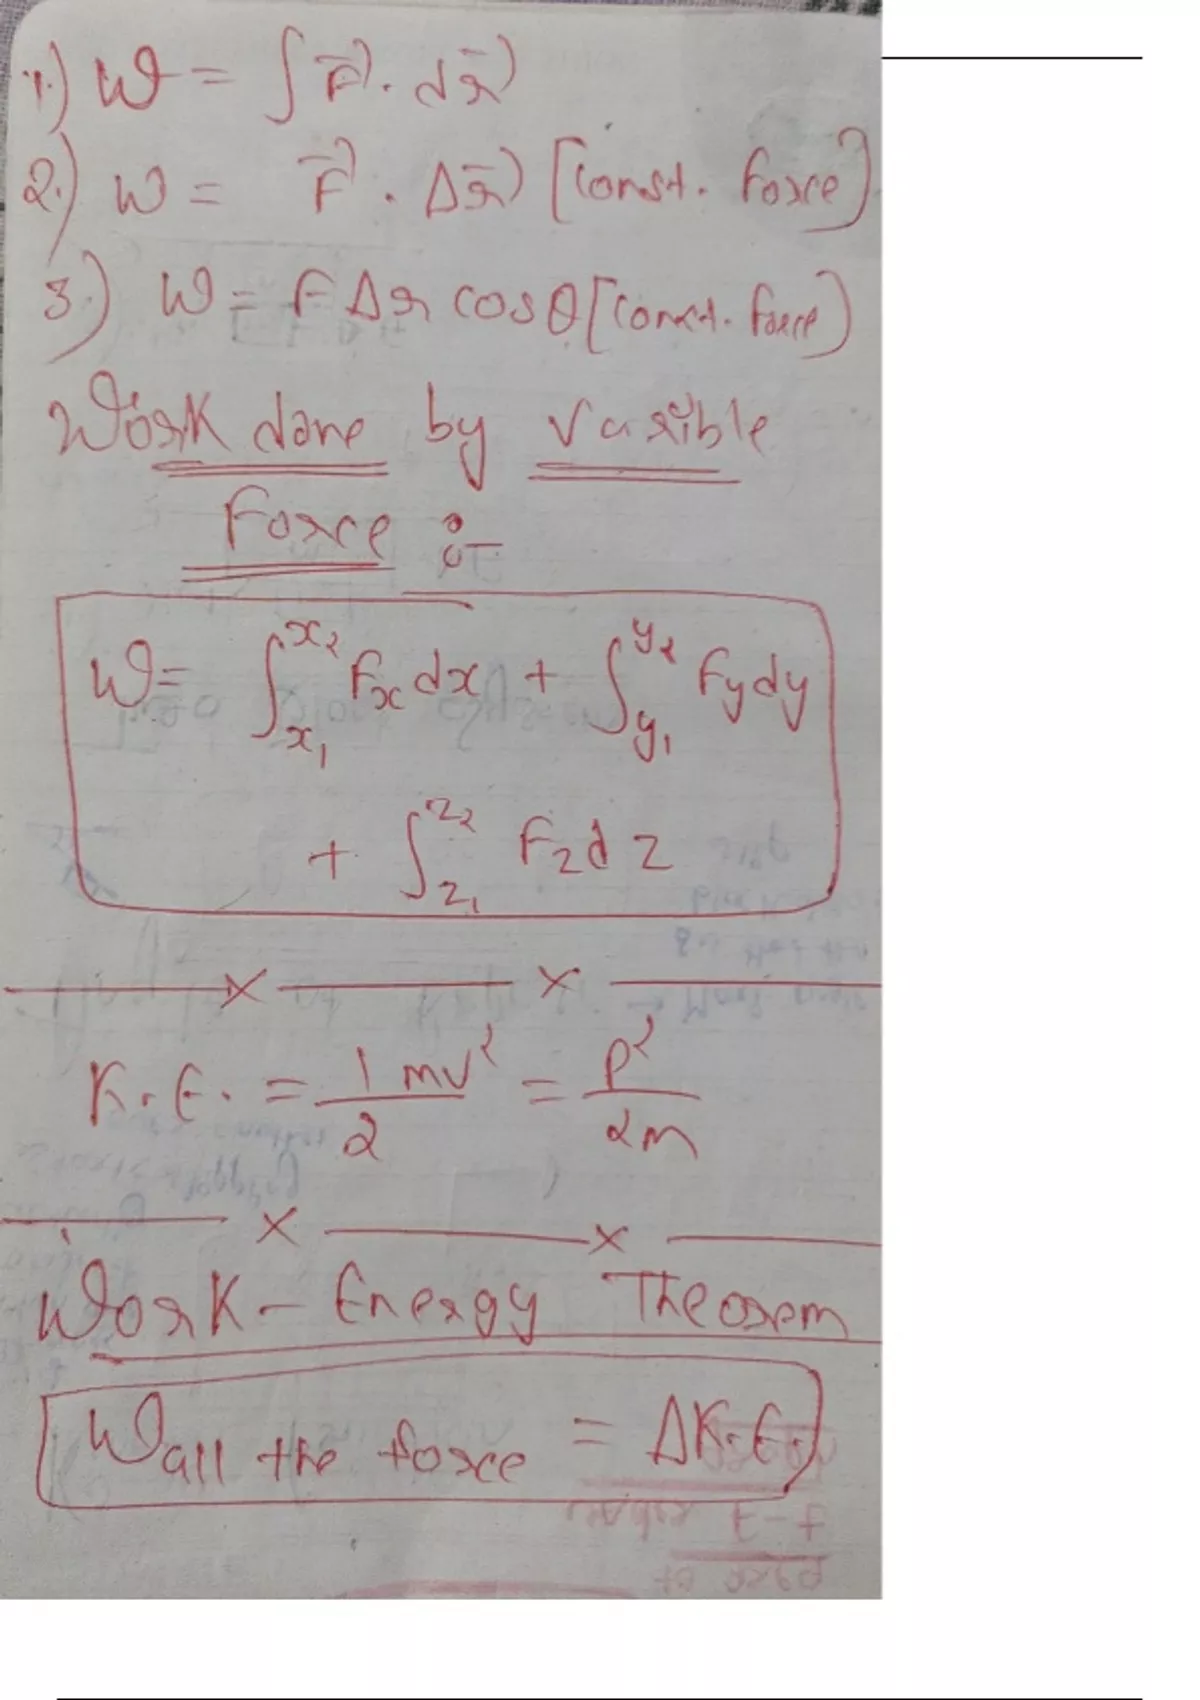 1.) W = ∫ F⃗ · dr⃗
2.) W = F⃗ · Δr⃗ [Const. Force]
3.) W = F Δr cosθ [Const. Force]
Work done by Varible
Force :-
W = ∫_{x₁}^{x₂} Fₓ dx + ∫_{y₁}^{y₂} Fy dy
+ ∫_{z₁}^{z₂} Fz dz
K.E. = 1 mv² / 2 = P² / 2m
Work - Energy Theorem
W all the force = ΔK.E.